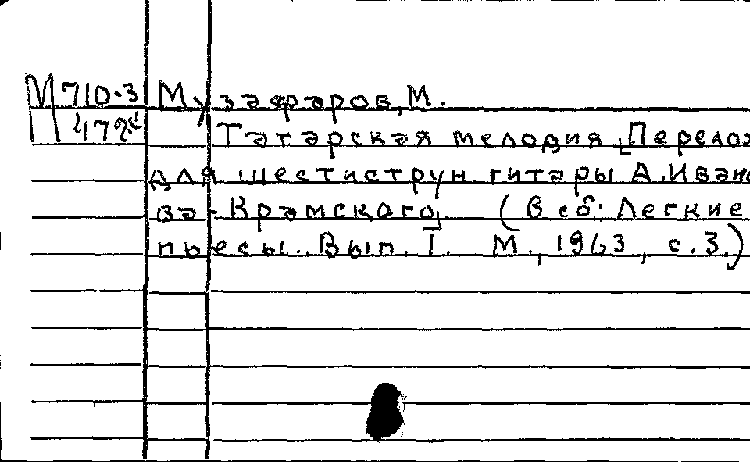 М 710.3 Музафаров, М.
Татарская мелодия [Перелож
для шестиструн. гитары А. Ивано
ва-Крамского] (В сб: Легкие
пьесы. Вып. I. М., 1963, с. 3.)